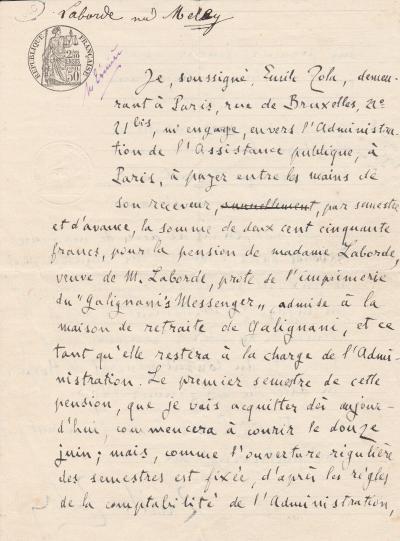 Laborde née
RÉPUBLIQUE FRANÇAISE
50
Je, soussigné, Emile Zola, demeu-
rant à Paris, rue de Bruxelles, no
21 bis, m'engage, envers l'Administra-
tion de l'Assistance publique, à
Paris, à payer entre les mains de
son receveur, annuellement, par semestre
et d'avance, la somme de deux cent cinquante
francs, pour la pension de madame Laborde,
veuve de M. Laborde, prote de l'imprimerie
du "Galignani's Messenger", admise à la
maison de retraite de Galignani, et ce
tant qu'elle restera à la charge de l'Admi-
nistration. Le premier semestre de cette
pension, que je vais acquitter dès aujour-
d'hui, commencera à courir le douze
juin; mais, comme l'ouverture régulière
des semestres est fixée, d'après les règles
de la comptabilité de l'Administration,